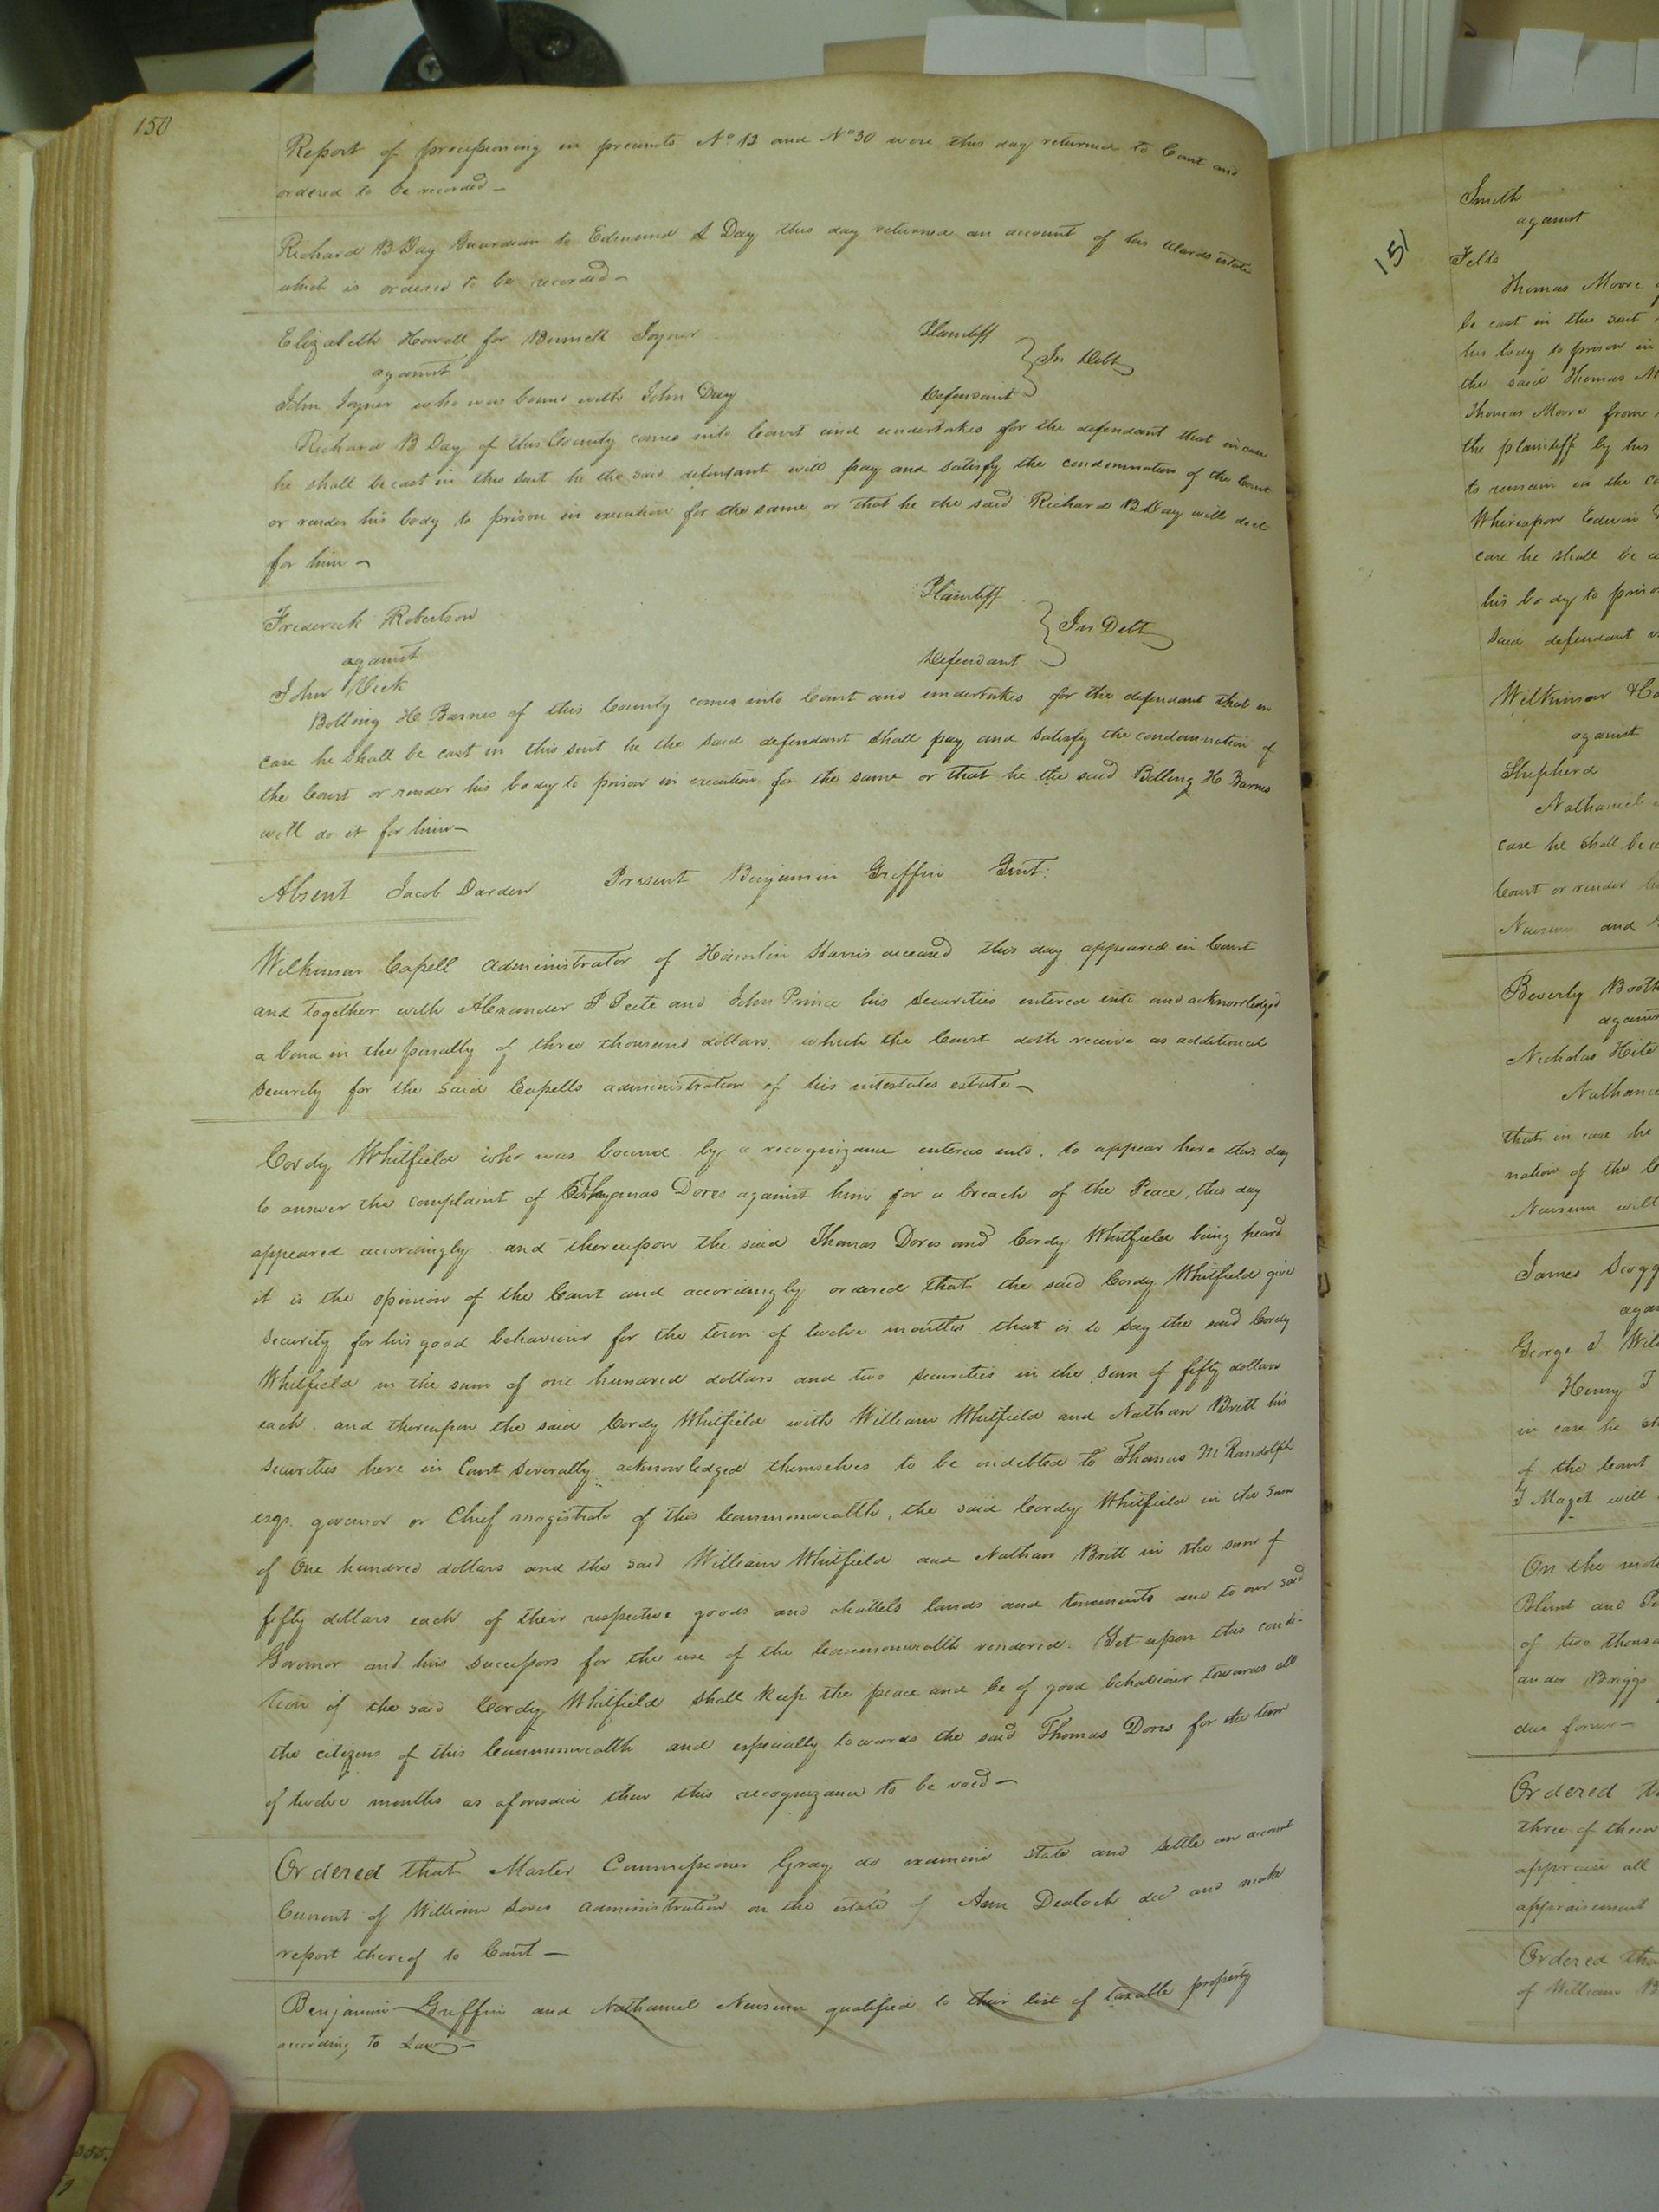 150
Report of processioning in precincts No 12 and No 30 were this day returned to Court and
ordered to be recorded—
Richard B Day Guardian to Edmund L Day this day returned an account of his Wards estate
which is ordered to be recorded—
Elizabeth Howell for Burnell Joyner Plaintiff
against } In Debt
John Joyner who was bound with John Day Defendant
Richard B Day of this County comes into Court and undertakes for the defendant that in case
he shall be cast in this suit he the said defendant will pay and satisfy the condemnation of the Court
or render his body to prison in execution for the same or that he the said Richard B Day will do it
for him—
Frederick Robertson Plaintiff
against } In Debt
John Vick Defendant
Bolling H Barnes of this County comes into Court and undertakes for the defendant that in
case he shall be cast in this suit he the said defendant shall pay and satisfy the condemnation of
the Court or render his body to prison in execution for the same or that he the said Bolling H Barnes
will do it for him—
Absent Jacob Darden Present Benjamin Griffin Gent.
Wilkinson Capell administrator of Hamlin Harris deceased this day appeared in Court
and together with Alexander P Peete and John Prince his securities entered into and acknowledged
a bond in the penalty of three thousand dollars, which the Court doth receive as additional
security for the said Capells administration of his intestates estate—
Cordy Whitfield who was bound by a recognizance entered into, to appear here this day
to answer the complaint of Thomas Dores against him for a breach of the Peace, this day
appeared accordingly and thereupon the said Thomas Dores and Cordy Whitfield being heard
it is the opinion of the Court and accordingly ordered that the said Cordy Whitfield give
security for his good behaviour for the term of twelve months that is to say the said Cordy
Whitfield in the sum of one hundred dollars and two securities in the sum of fifty dollars
each. and thereupon the said Cordy Whitfield with William Whitfield and Nathan Britt his
securities here in Court severally acknowledged themselves to be indebted to Thomas M Randolph
esqr. governor or Chief magistrate of this Commonwealth, the said Cordy Whitfield in the sum
of One hundred dollars and the said William Whitfield and Nathan Britt in the sum of
fifty dollars each of their respective goods and chattels lands and tenements and to our said
Governor and his successors for the use of the Commonwealth rendered. Yet upon this condi-
tion if the said Cordy Whitfield shall keep the peace and be of good behaviour towards all
the citizens of this Commonwealth and especially towards the said Thomas Dores for the term
of twelve months as aforesaid then this recognizance to be void—
Ordered that Master Commissioner Gray do examine state and settle an account
Current of William Dores administration on the estate of Ann Dealoch decd. and make
report thereof to Court—
Benjamin Griffin and Nathaniel Newsum qualified to their list of taxable property
according to Law—
151
Smith
against
Felts
Thomas Moore
be cast in this suit
his body to prison in
the said Thomas
Thomas Moore from
the plaintiff by his
to remain in the
Whereupon Edwin
case he shall be
his body to
said defendant
Wilkinson &
against
Shepherd
Nathaniel
case he shall be
Court or render
Newsum and
Beverly Booth
against
Nicholas Hite
that in case he
nation of the
Newsum will
James
George
Henry
in case he
of the Court
Maget will
On the
Blunt and
of two
ander Briggs
due form—
Ordered
three of them
appraise all
appraisement
Ordered
of William